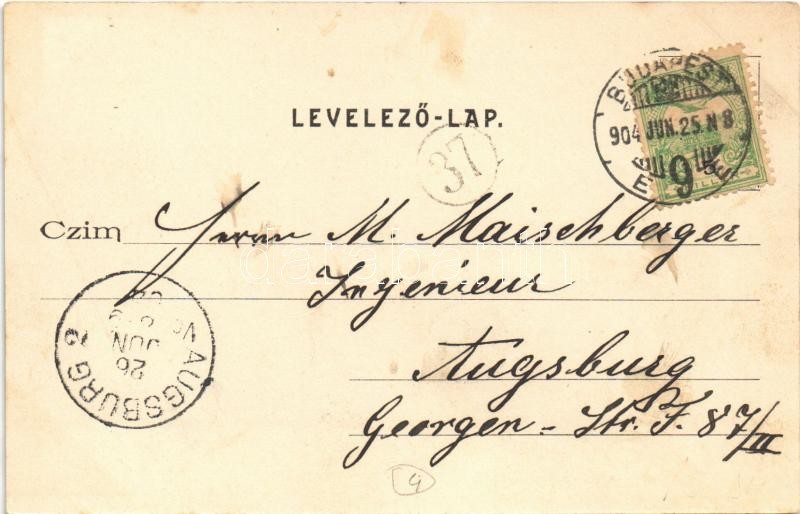 LEVELEZŐ-LAP.
BUDAPEST
904 JUN. 25. N 8
9
37
Czim
Herrn M. Maischberger
Ingenieur
Augsburg
Georgen-Str. F. 87/III
AUGSBURG 2
26
JUN
9